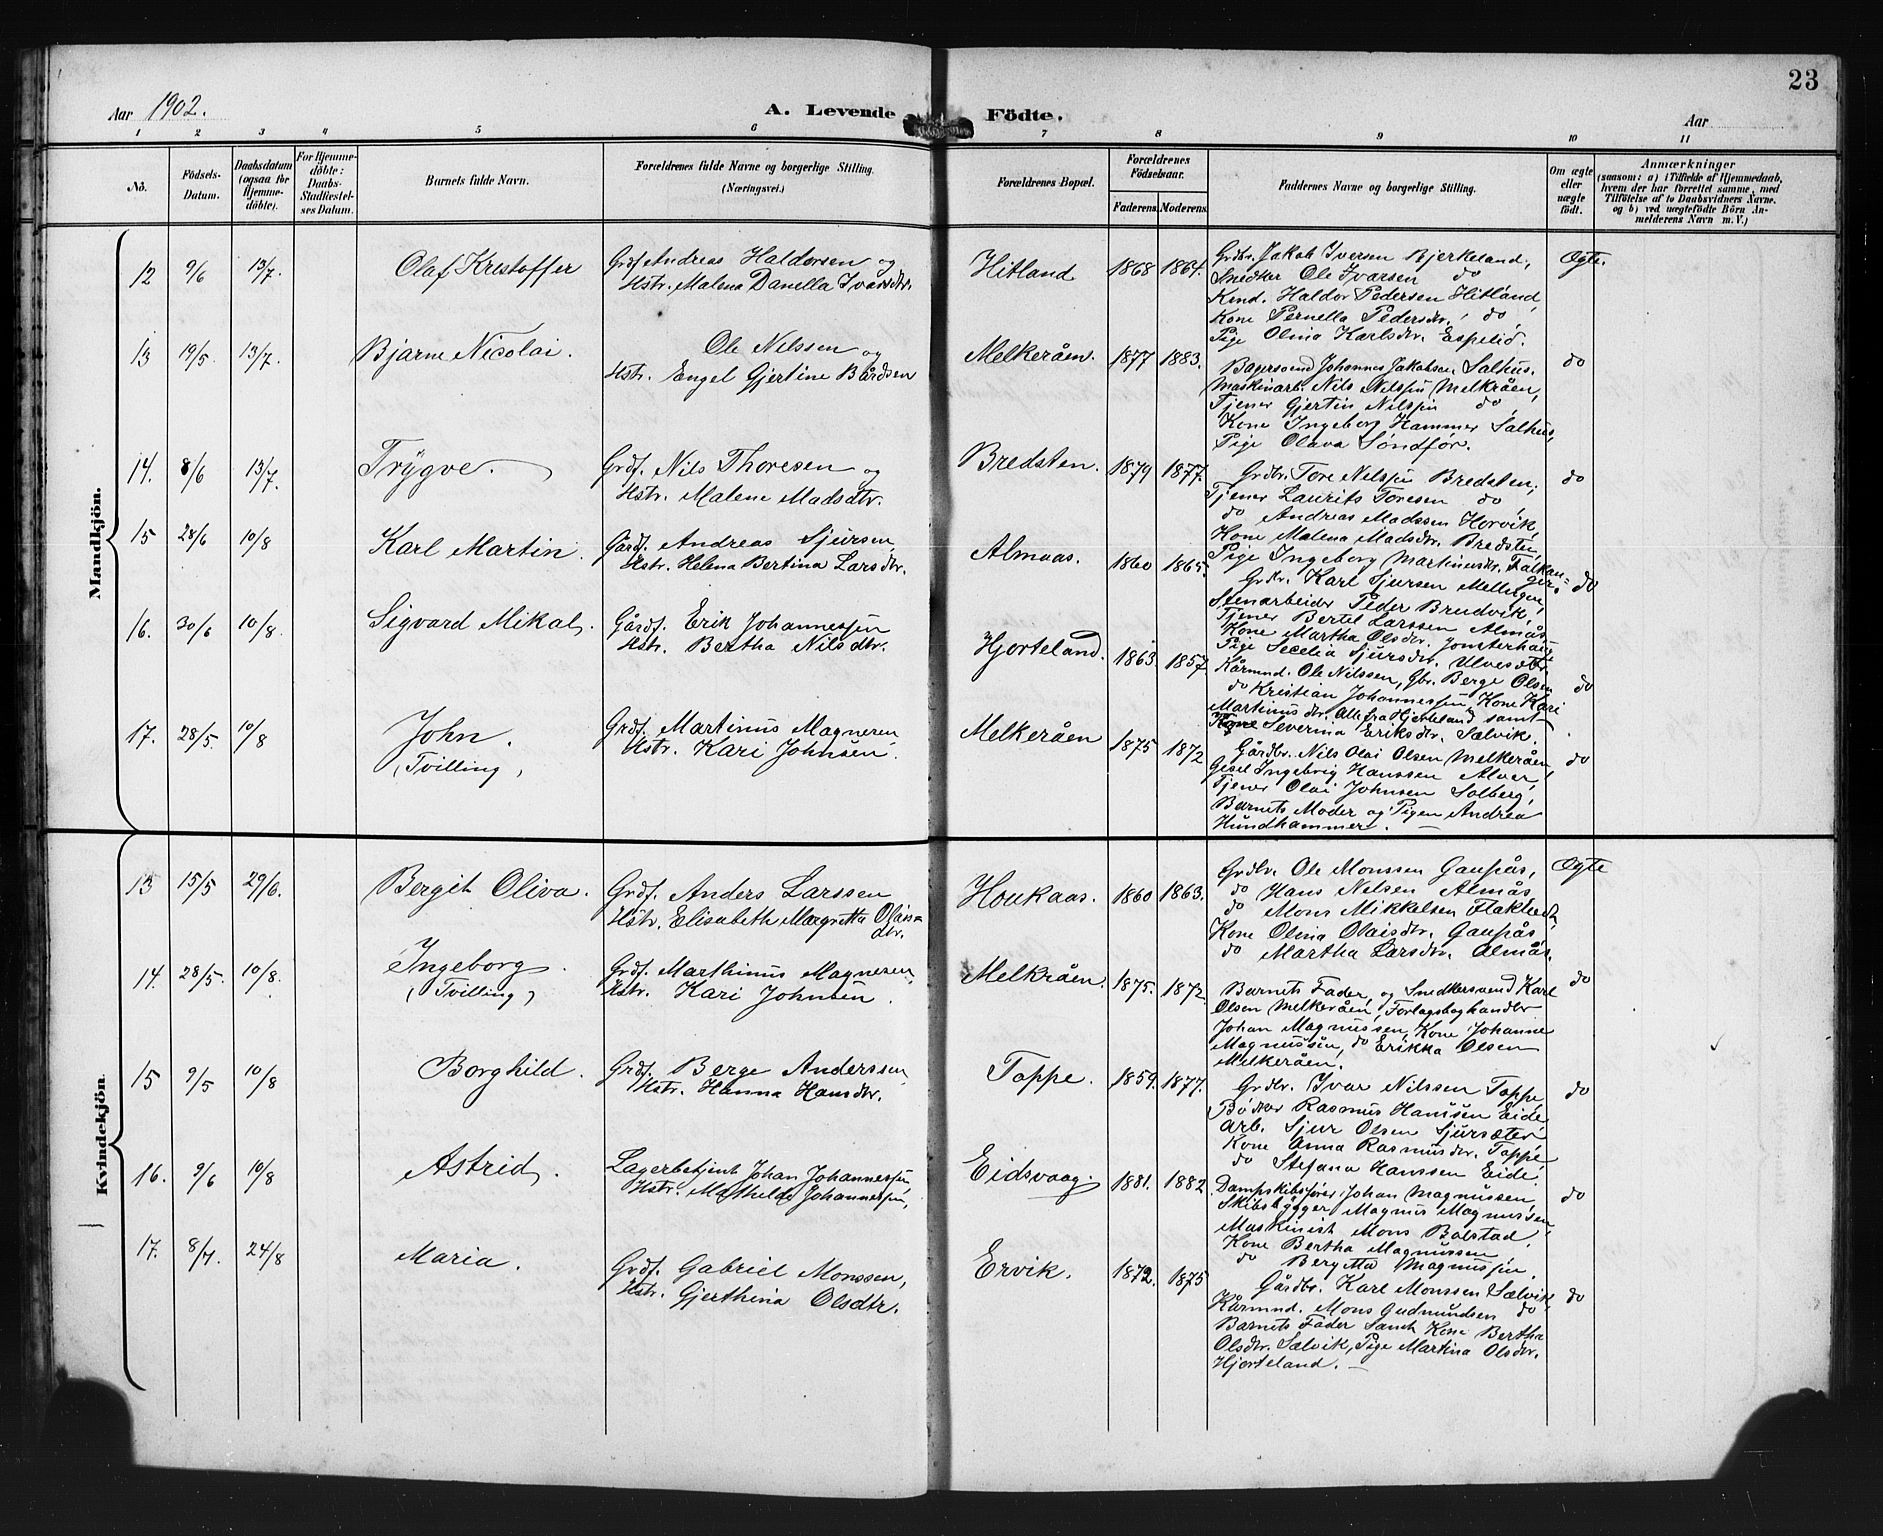 23
Aar 1902.
A. Levende Födte.
Aar
1 2 3 4 5 6 7 8 9 10 11
No.
Födsels-Datum.
Daabsdatum (ogsaa for Hjemme-döbte).
For Hjemme-döbte: Daabs-Stadfæstel-ses Datum.
Barnets fulde Navn.
Forældrenes fulde Navne og borgerlige Stilling.
(Næringsvei.)
Forældrenes Bopæl.
Forældrenes Födselsaar.
Faderens. Moderens.
Faddernes Navne og borgerlige Stilling.
Om ægte eller uægte födt.
Anmærkninger
(saasom: a) i Tilfælde af Hjemmedaab, hvem der har forrettet samme, med Tilföielse af to Daabsvidners Navne. og b) ved uægtefödte Börn An-melderens Navn m. V.)
Mandkjön.
12 9/6 13/7. Olaf Kristoffer
Grdf. Andreas Haldorsen og
Hstr. Malena Danella Ivarsdtr.
Hitland 1868 1864.
Grdbr. Jakob Iversen Bjerkeland,
Snedker Ole Ivarsen do
Kmd. Haldor Pedersen Hitland,
Kone Pernella Pedersdtr. do,
Pige Olina Karlsdtr. Espelid.
Ægte.
13 19/5. 13/7. Bjarne Nicolai.
Ole Nilssen og
Hstr. Engel Gjertine Bårdsen
Melkeråen. 1877 1883.
Bagersvend Johannes Jakobsen Salhus.
Maskinarb. Nils Nilssen Melkråen,
Tjener Gjertin Nilssen do,
Kone Ingeborg Hammer Salhus,
Pige Olava Söndför.
do
14. 8/6 13/7. Trygve.
Grdf. Nils Thoresen og
Hstr. Malene Madsdtr.
Bredsten. 1879 1877.
Grdbr. Tore Nilssen Bredsten,
Tjener Laurits Toresen do,
do Andreas Madssen Horvik,
Kone Malena Madsdtr. Bredsten,
Pige Ingeborg Martinusdtr. Falkanger.
do
15 28/6 10/8 Karl Martin.
Gårdf. Andreas Sjursen,
Hstr. Helena Bertina Larsdtr.
Almaas. 1860 1865.
Grdbr. Karl Sjursen Mellingen,
Stenarbeider Peder Brudvik,
Tjener Bertel Larssen Almås,
Kone Martha Olsdtr. Jonsterhaug
Pige Secelia Sjursdtr. Ulvesæter
do
16. 30/6 10/8. Sigvard Mikal.
Gårdf. Erik Johannessen
Hstr. Bertha Nilsdtr.
Hjorteland. 1863 1857.
Kårmnd. Ole Nilssen, Gbr. Berge Olsen
do Kristian Johannessen, Kone Kari
Martinusdtr. Alle fra Hjorteland samt
Severina Eriksdtr. Sælvik.
do
17. 28/5. 10/8 John.
(Tvilling)
Grdf. Martinus Magnesen
Hstr. Kari Johnsen.
Melkeråen 1875 1872
Gårdbr. Nils Olai Olsen Melkeråen,
Gesel Ingebrig Hanssen Alver,
Tjener Olai Johnsen Solberg,
Barnets Moder og Pigen Andrea
Hundhammer.
do
Kvindekjön.
13 15/5 29/6. Bergit Oliva.
Grdf. Anders Larssen
Hstr. Elisabeth Margretta Olais-
dtr.
Houkaas. 1860 1863.
Grdbr. Ole Monssen Gaupås,
do Hans Nelsen Almås,
do Mons Mikkelsen Flaktveit,
Kone Olina Olaisdtr. Gaupås,
do Martha Larsdtr. Almås.
Ægte
14. 28/5. 10/8. Ingeborg.
(Tvilling)
Grdf. Marthinus Magnesen,
Hstr. Kari Johnsen.
Melkråen. 1875. 1872.
Barnets Fader, og Snedkersvend Karl
Olsen Melkeråen, Forlagsboghandler
Johan Magnussen, Kone Johanne
Magnussen, do Erikka Olsen
Melkeråen.
do
15 9/5 10/8 Borghild.
Grdf. Berge Anderssen,
Hstr. Hanna Hansdtr.
Toppe. 1859. 1877.
Grdbr. Ivar Nilssen Toppe,
Bödker Rasmus Hanssen Eide,
Arb. Sjur Olsen Sjursæter,
Kone Anna Rasmusdtr. Toppe,
do Stefana Hanssen Eide.
do
16. 9/6 10/8 Astrid.
Lagerbetjent Johan Johannessen,
Hstr. Mathilde Johannessen,
Eidsvaag. 1881. 1882
Dampskibsförer Johan Magnussen,
Skibsbygger Magnus Magnussen,
Maskinist Mons Bolstad,
Kone Bertha Magnussen,
do Bergitta Magnussen.
do
17. 8/7. 24/8 Maria.
Grdf. Gabriel Monssen,
Hstr. Gjerthina Olsdtr.
Ervik. 1872. 1875
Gårdbr. Karl Monssen Sælvik,
Kårmnd. Mons Gudmundsen do
Barnets Fader Samt Kone Bertha
Olsdtr. Sælvik, Pige Martina Olsdtr.
Hjorteland.
do